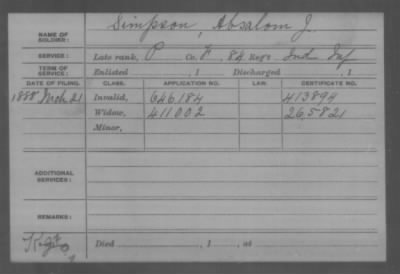 NAME OF SOLDIER: Simpson, Absalom J.
SERVICE: Late rank, P Co. F, 84 Reg't Ind Inf
TERM OF SERVICE: Enlisted , 1 Discharged , 1
DATE OF FILING. CLASS. APPLICATION NO. LAW. CERTIFICATE NO.
1888 Mch 21 Invalid, 646184 413894
Widow, 411002 265821
Minor,
ADDITIONAL SERVICES:
REMARKS:
Died , 1 , at